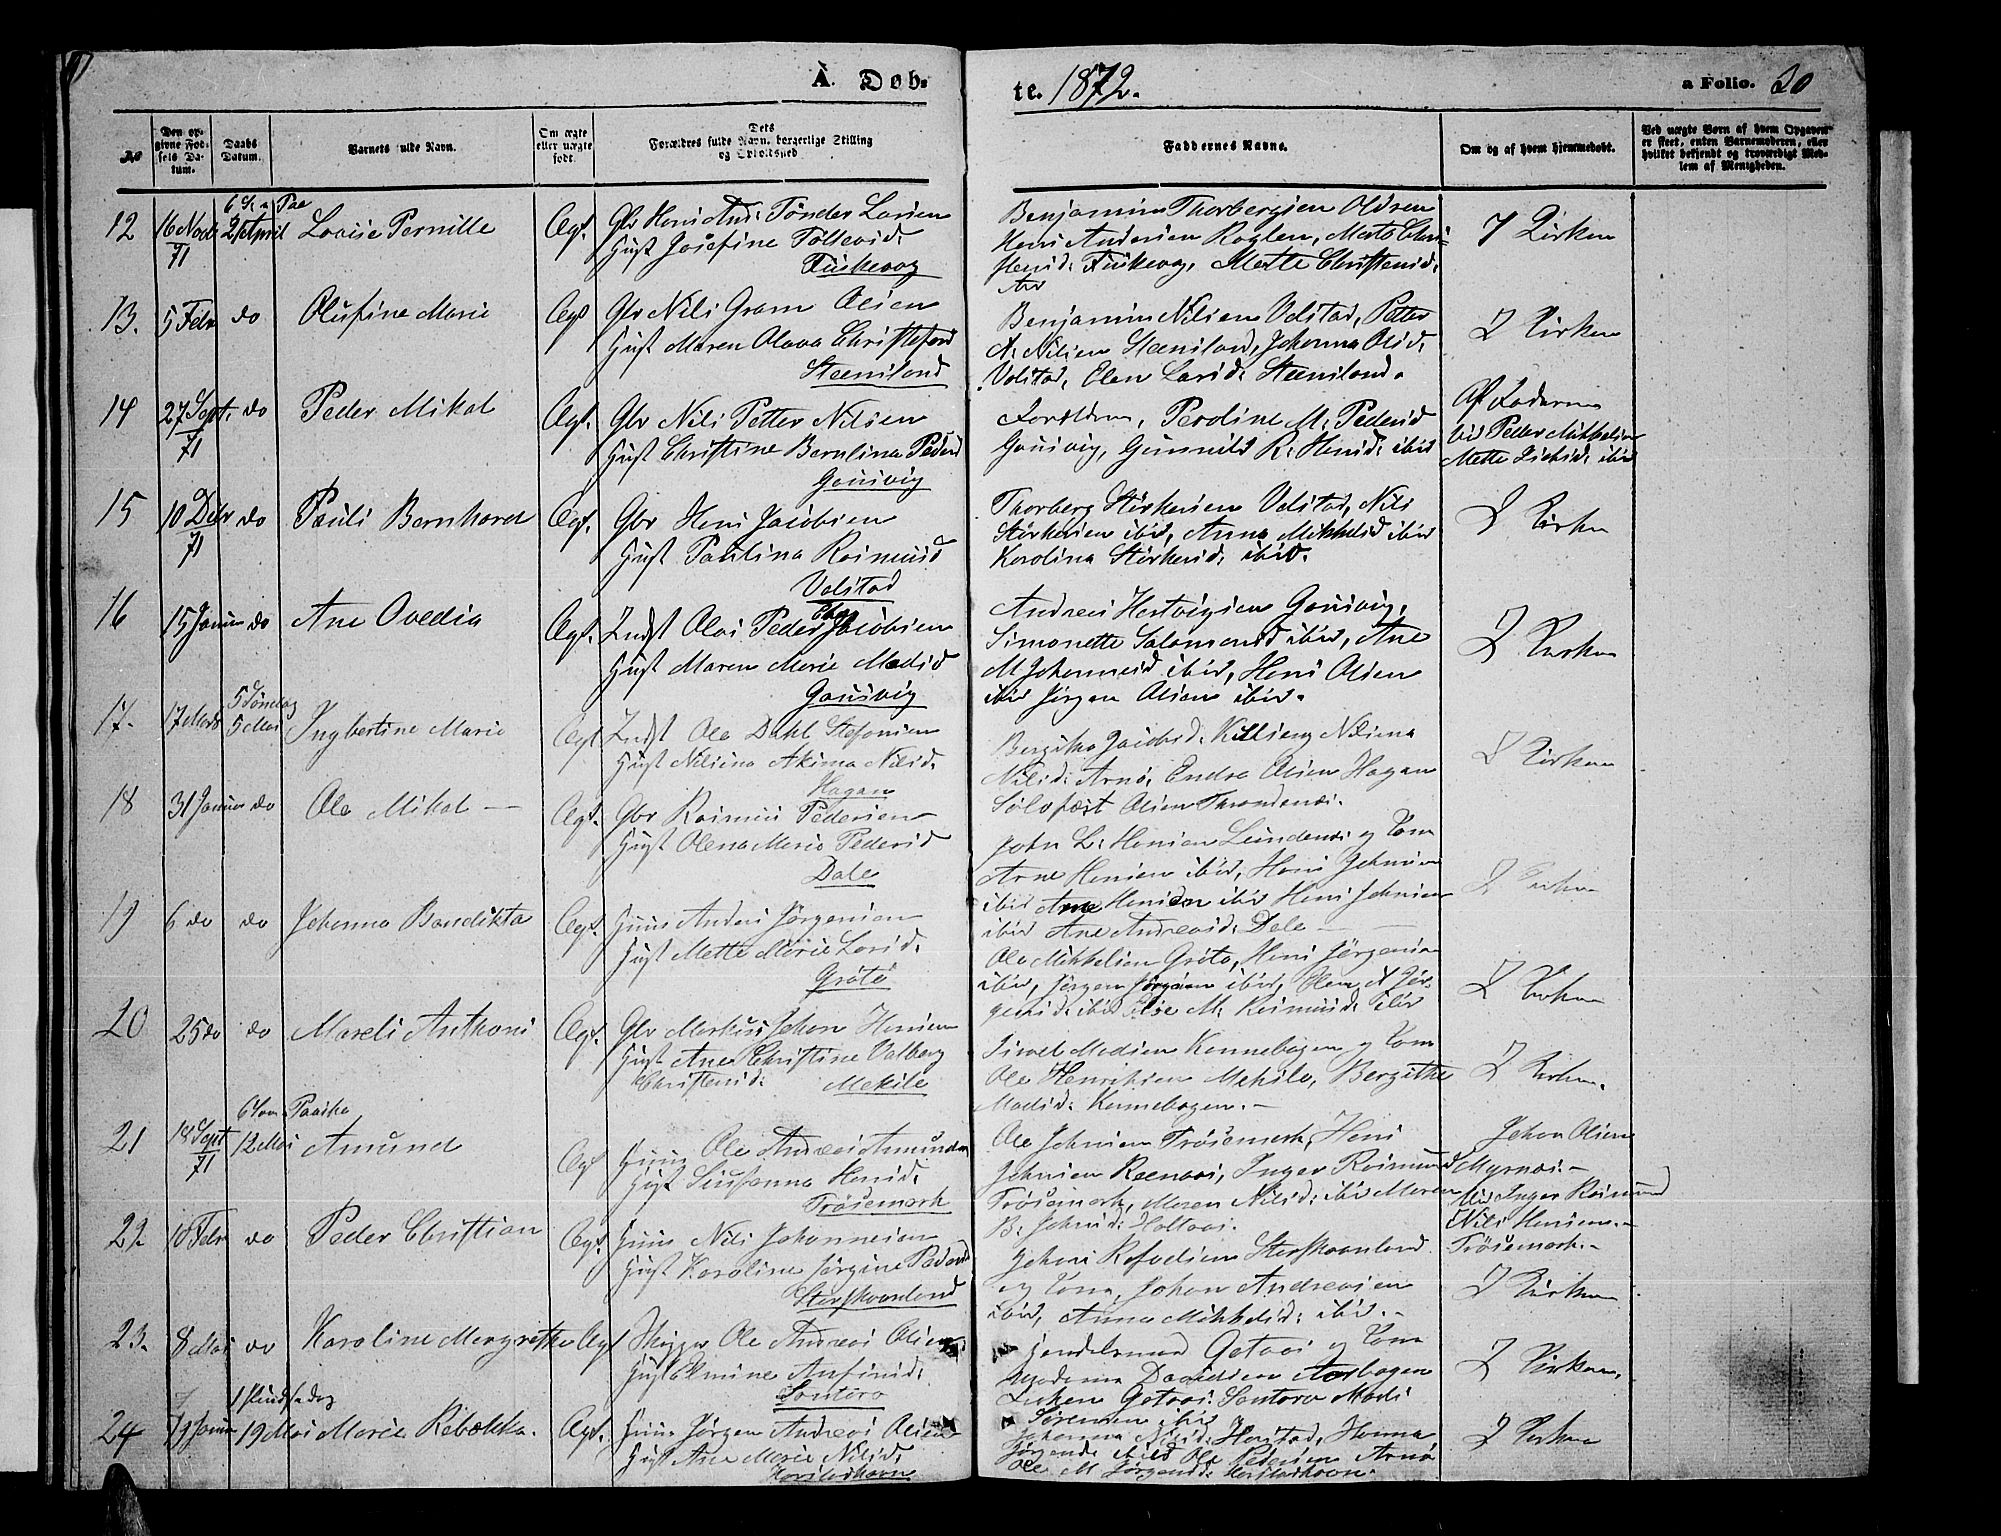 A. Døb-
te. 1872.
a Folio. 30
No
Den op-
givne Fød-
sels Da-
tum.
Daabs
Datum.
Barnets fulde Navn.
Om ægte
eller uægte
født.
Dets
Forældres fulde Navn, borgerlige Stilling
og Opholdssted
Faddernes Navne.
Om og af hvem hjemmedøbt.
Ved uægte Børn af hvem Opgaven
er skeet, enten Barnemoderen, eller
hvilket bekjendt og troværdigt Med-
lem af Menigheden.
12
16 Novbr
71
21 April
Lovise Pernille
Ægt.
Gbr Hans And: Tønder Larsen
Hust Josefine Tollevsd:
Fuskevog
Benjamin Thorbergsen Oldren
Hans Andersen
Fuskevog, Mette Christensd:
I Kirken
13.
5 Febr
do
Olufine Marie
Ægt
Gbr Nils Gram Olsen
Hust Maren Olava Christofersd
Steensland
Benjamin Nilsen Volstad, Petter
A. Nilsen Steensland, Johanna Olsd:
Volstad, Elen Larsd: Steensland.
I Kirken
14
27 Sept.
71
do
Peder Mikal
Ægt.
Gbr Nils Petter Nilsen
Hust Christine Berulina Pedersd
Gausvig
Forældrene, Peroline M: Pedersd
Gausvig, Gunnild R: Hansd: ibid
Af Faderen
bid Petter Mikkelsen
Mette ibid
15
10 Debr
71
do
Pauli Bernhard
Ægt.
Gbr Hans Jacobsen
Hust Paulina Rasmusd
Volstad
Thorberg Størkersen Volstad, Nils
Størkersen ibid, Anna Mikkelsd ibid
Karolina Størkersd: ibid.
I Kirken
16
15 Januar
do
Ane Ovedia
Ægt.
Indst Olai Peder Jacobsen
Hust Maren Marie Madsd
Gausvig
Andreas Hartvigsen Gausvig,
Simonette Salamonsd ibid, Ane
M Johannesd ibid, Hans Olsen
ibid Jørgen Olsen ibid.
I Kirken
17.
17 Marts
5 Søndag
5 Mai
Ingbertine Marie
Ægt
Indst Ole Dahl Stefansen
Hust Nilsina Akima Nilsd.
Hagan
Bergitha Jacobsd: Nilsina
Nilsd: Arnø, Endre Olsen Hagan
Sølofæst Olsen Throndenæs.
I Kirken
18
31 Januar
do
Ole Mikal
Ægt.
Gbr Rasmus Pedersen
Hust Olena Marie Pedersd
Dale
John L: Hansen Lundenes og Kone
Arne Hansen ibid, Hans Johnsen
ibid Hansen ibid Hans Johnsen
ibid Ane Andreasd: Dale
I Kirken
19
6 do
do
Johanna Bendikta
Ægt.
Huus Anders Jørgensen
Hust Mette Marie Larsd:
Grøtø
Ole Mikkelsen Grøtø, Hans Jørgensen
ibid, Jørgen Jørgensen ibid, Elen A Jør-
gensd: ibid Else M. Rasmusd: ibid
I Kirken
20
25 do
do
Mareli Anthoni
Ægt.
Gbr Markus Johan Hansen
Hust Ane Christine Valberg
Christensd: Mekile
Sivel Madsen Kennebogen og Kone
Ole Henriksen Mekile, Bergithe
Madsd: Kennebogen.
I Kirken.
21
18 Sept
71
6 Paaske
12 Mai
Amund
Ægt
Huus Ole Andreas Amundsen
Hust Susanna Hansd:
Trøsemark
Ole Johnsen Trøsemark, Hans
Johnsen Reenaas, Inger Rasmusd
Trøsemark, Maren Nilsd: ibid Maren
B. Johnsd: Holtaas.
Johan Olsen
Myrnæs
Inger Rasmusd
Nils Hansen
Trøsemark.
22
10 Febr
do
Peder Christian
Ægt.
Huus Nils Johannesen
Hust Karoline Jørgine Pedersd
Storskaanland
Johan Rafaelsen Storskaanland
og Kone, Johan Andreasen
ibid, Anna Mikkelsd: ibid.
I Kirken
23.
8 Mai
do
Karoline Margrethe
Ægt
Skipper Ole Andreas Olsen
Hust Elmine Anfinsd:
Santøro
Handelsmand Getaas og Kone
Davidsen Aarbogen
Getaas. Santøro Mads
Sørensen ibid
I Kirken.
24
19 Januar
1 Pindsedag
19 Mai
Marie Rebekka.
Ægt.
Huus Jørgen Andreas Olsen
Hust Ane Marie Nilsd:
Harstadhavn
Johanna Nilsd: Harstad, Hanna
Jørgensd: ibid Ole Pedersen Arnø
Ole M Jørgensd: Harstadhavn.
I Kirken